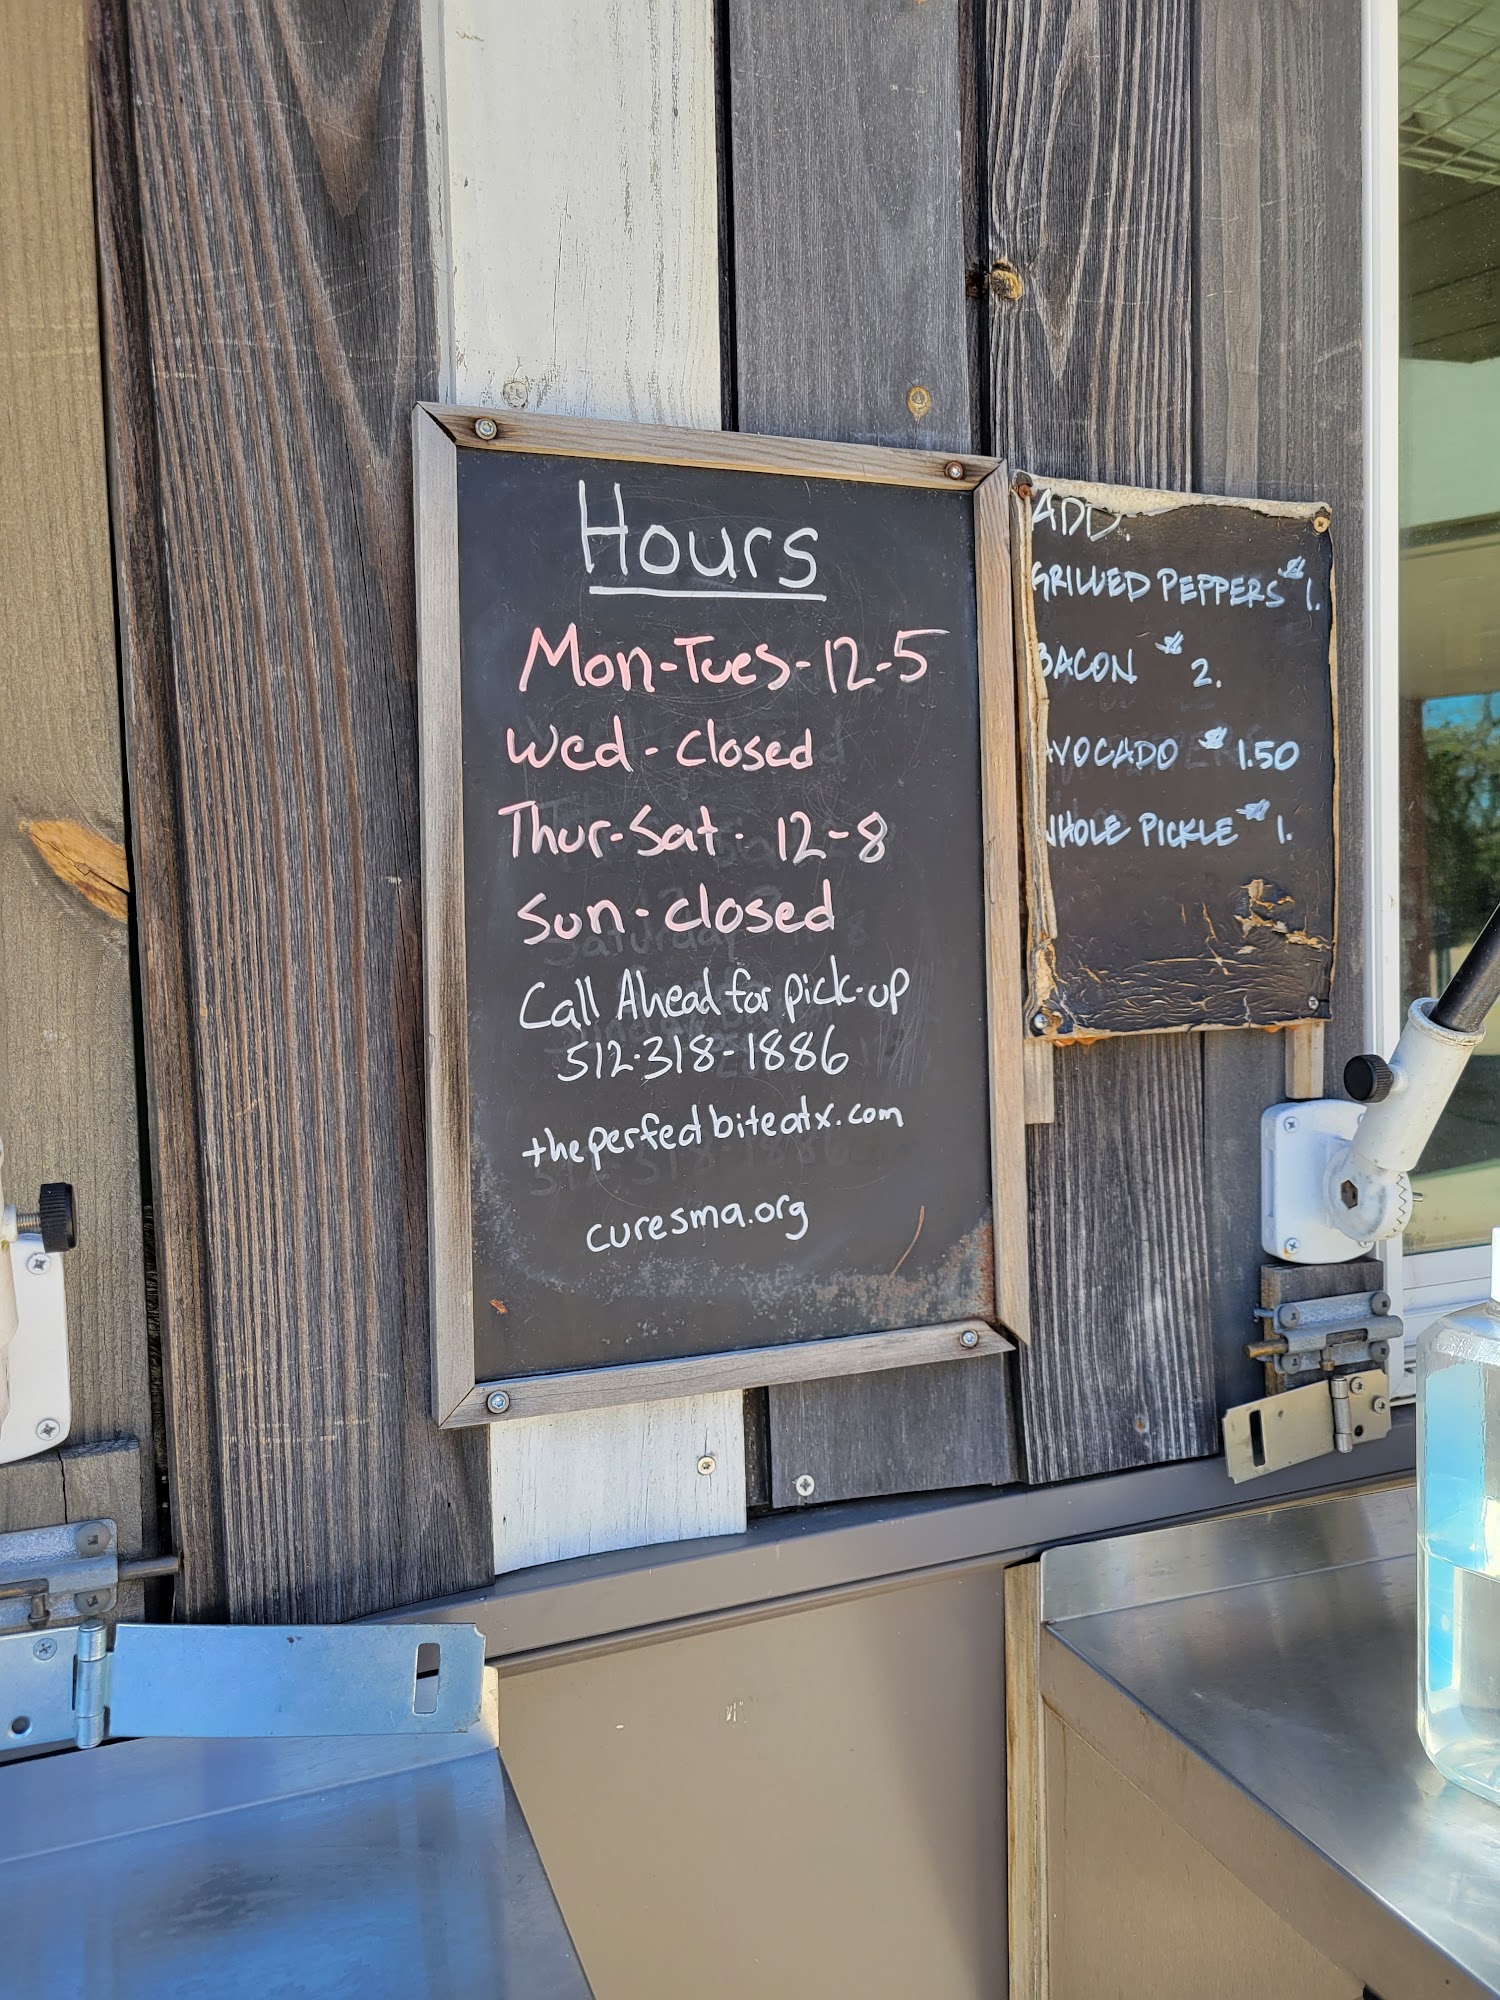 Hours
Mon-Tues-12-5
Wed-closed
Thur-Sat-12-8
Sun-closed
Call Ahead for pick-up
512-318-1886
theperfectbiteatx.com
curesma.org
ADD.
GRILLED PEPPERS $1.
BACON $2.
AVOCADO $1.50
WHOLE PICKLE $1.